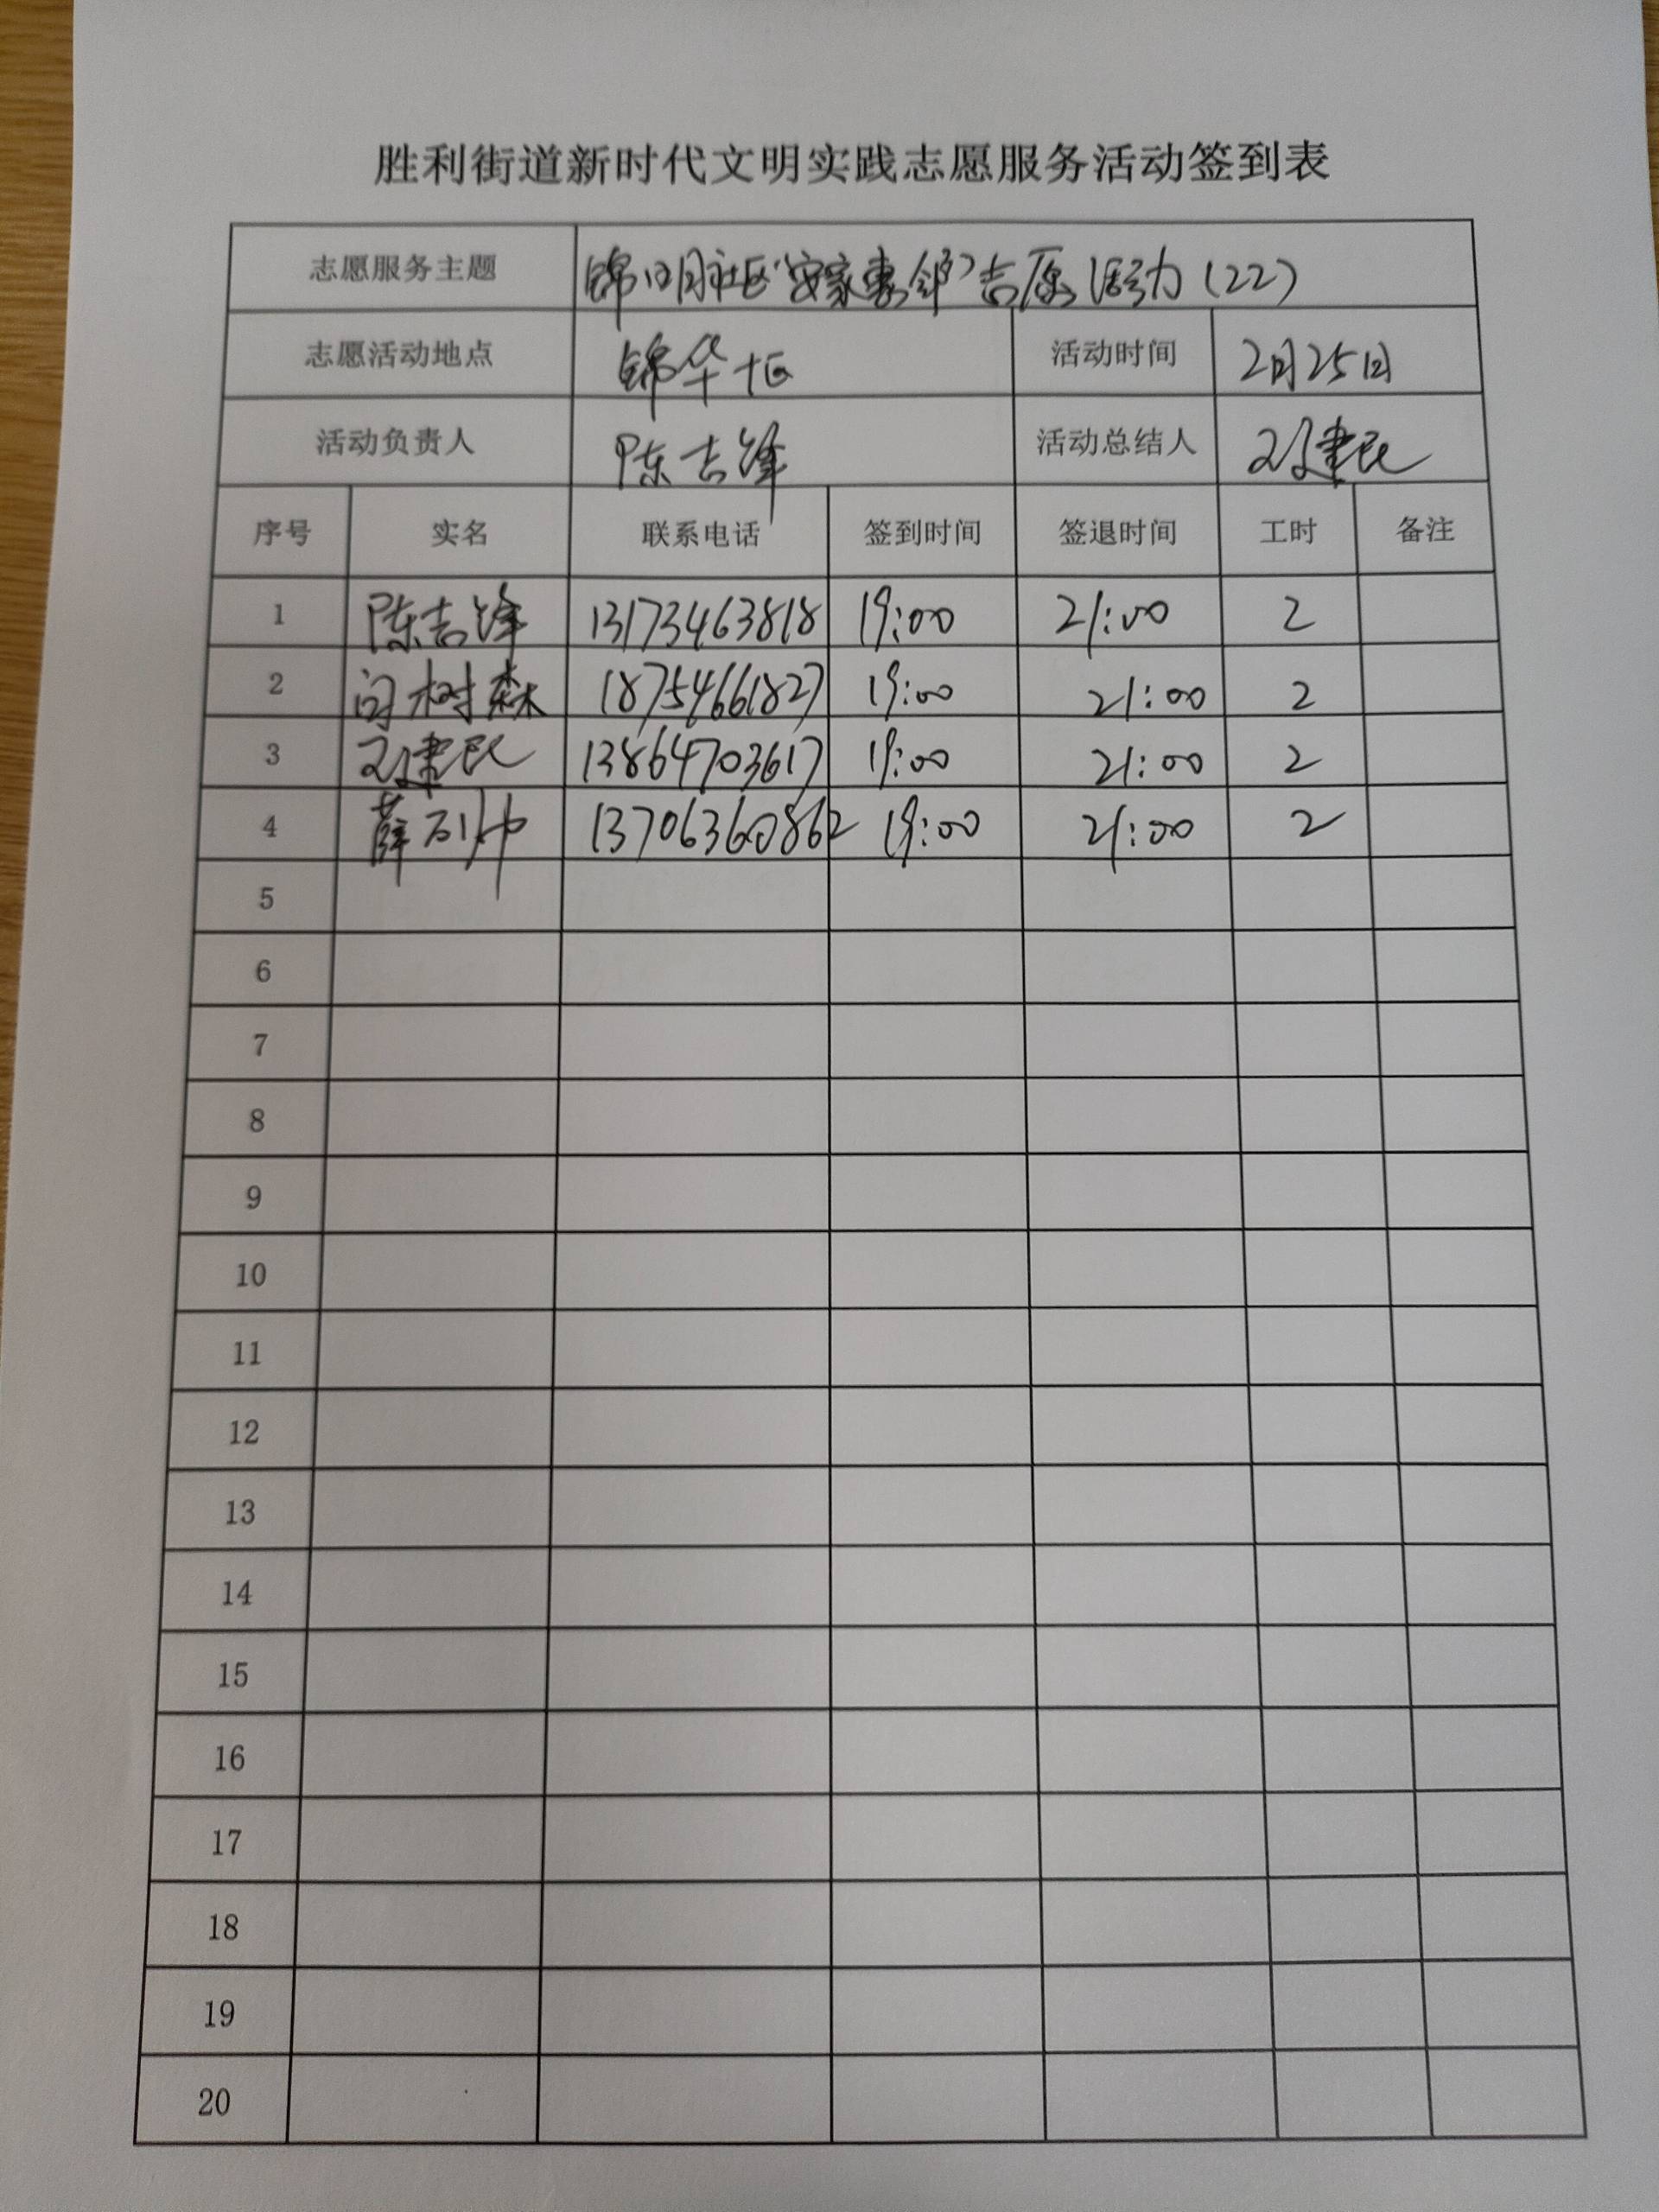 胜利街道新时代文明实践志愿服务活动签到表
志愿服务主题 锦明社区“安家惠邻”志愿活动(22)
志愿活动地点 锦华十区 活动时间 2月25日
活动负责人 陈吉锋 活动总结人 建民
序号 实名 联系电话 签到时间 签退时间 工时 备注
1 陈吉锋 13173463818 19:00 21:00 2
2 闫树森 18754661827 19:00 21:00 2
3 建民 13864703617 19:00 21:00 2
4 薛 13706360862 19:00 21:00 2
5
6
7
8
9
10
11
12
13
14
15
16
17
18
19
20